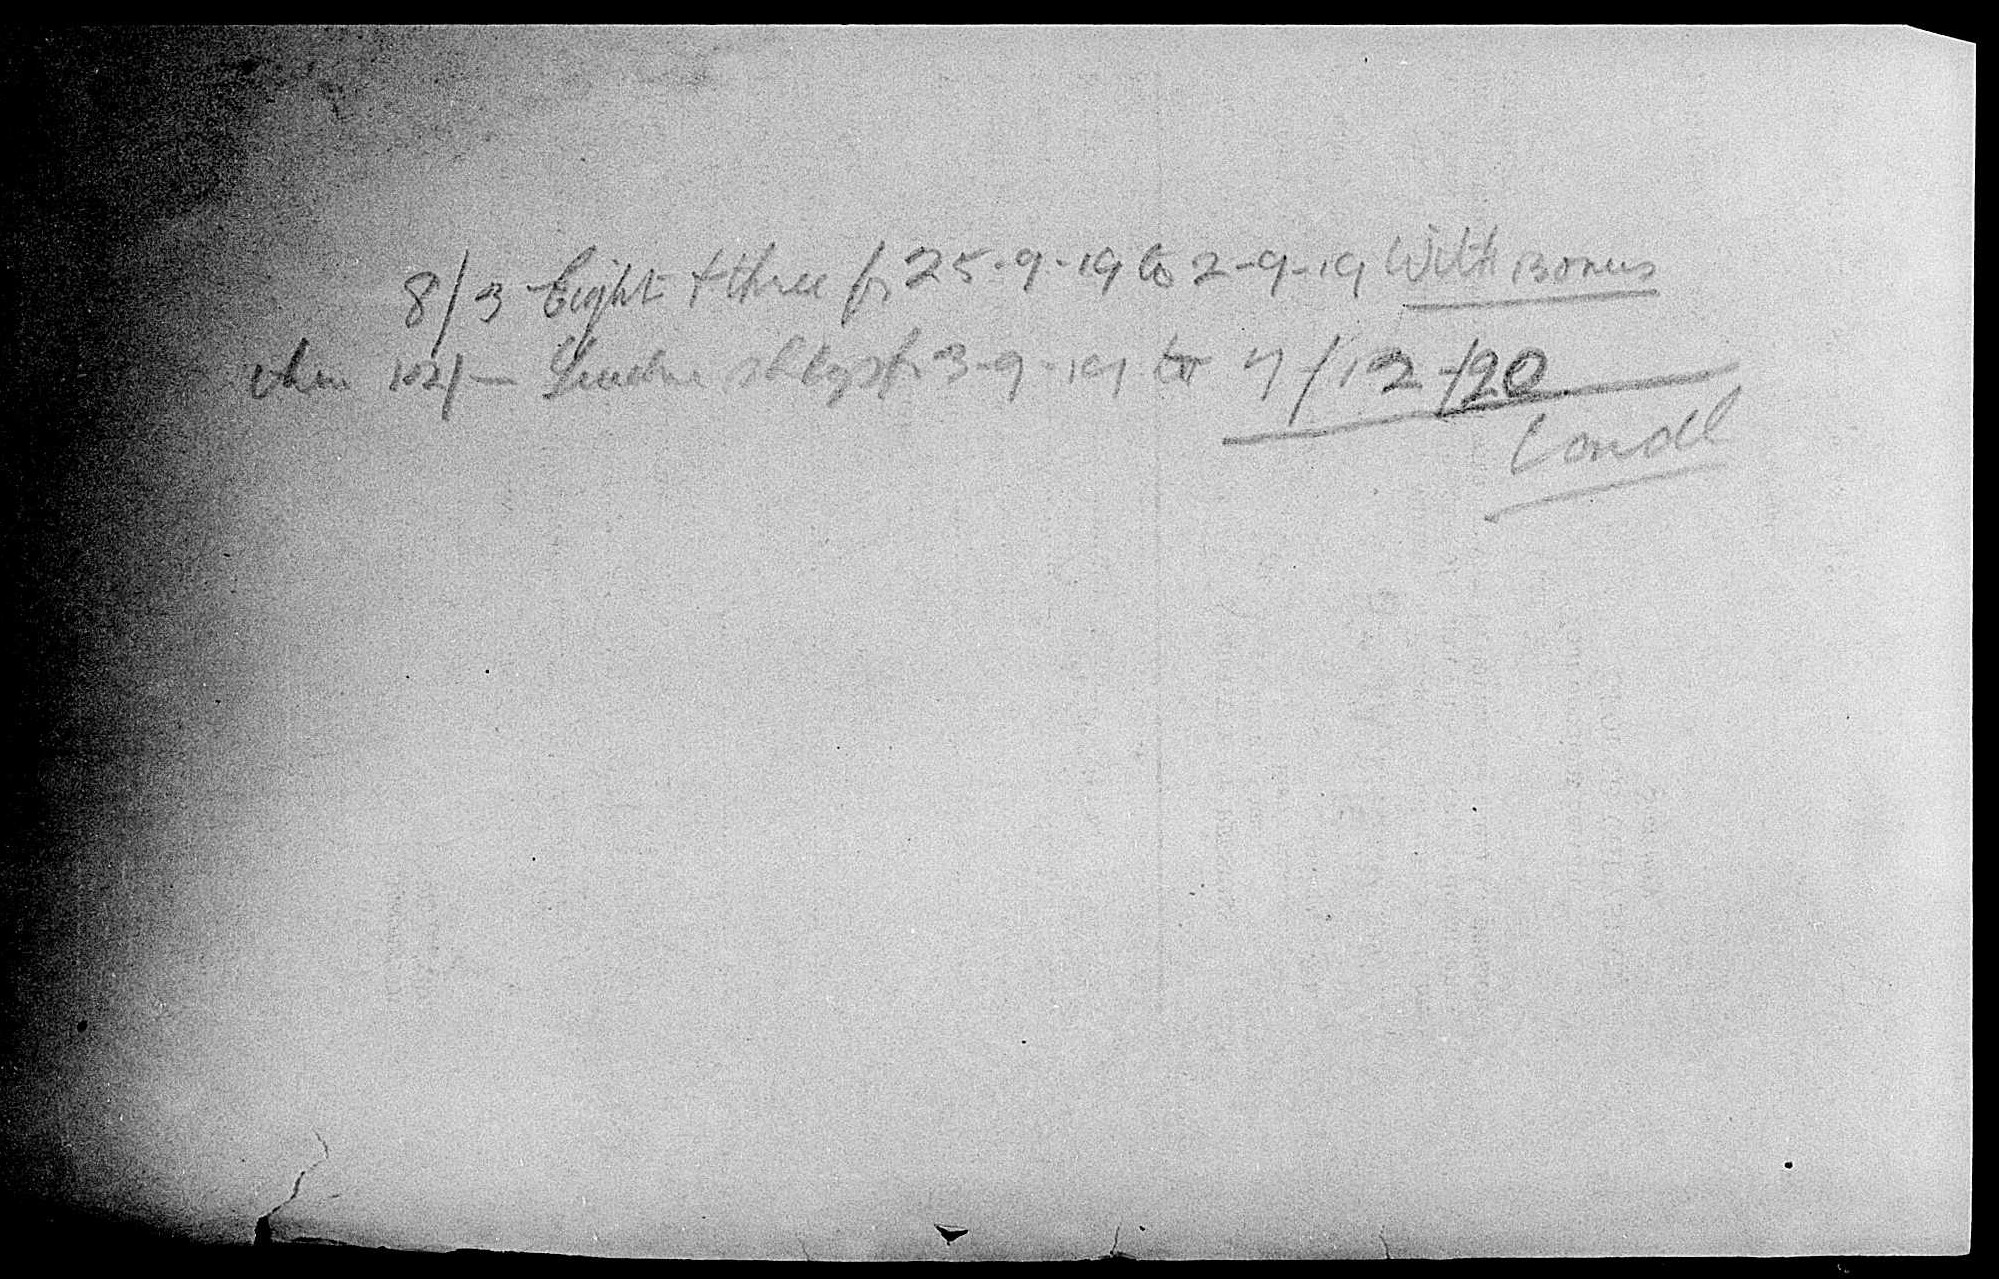 8/3 Eight + three fr 25-9-19 to 2-9-19 With Bonus
then 12/- fr 3-9-19 to 7/12/20
Condl